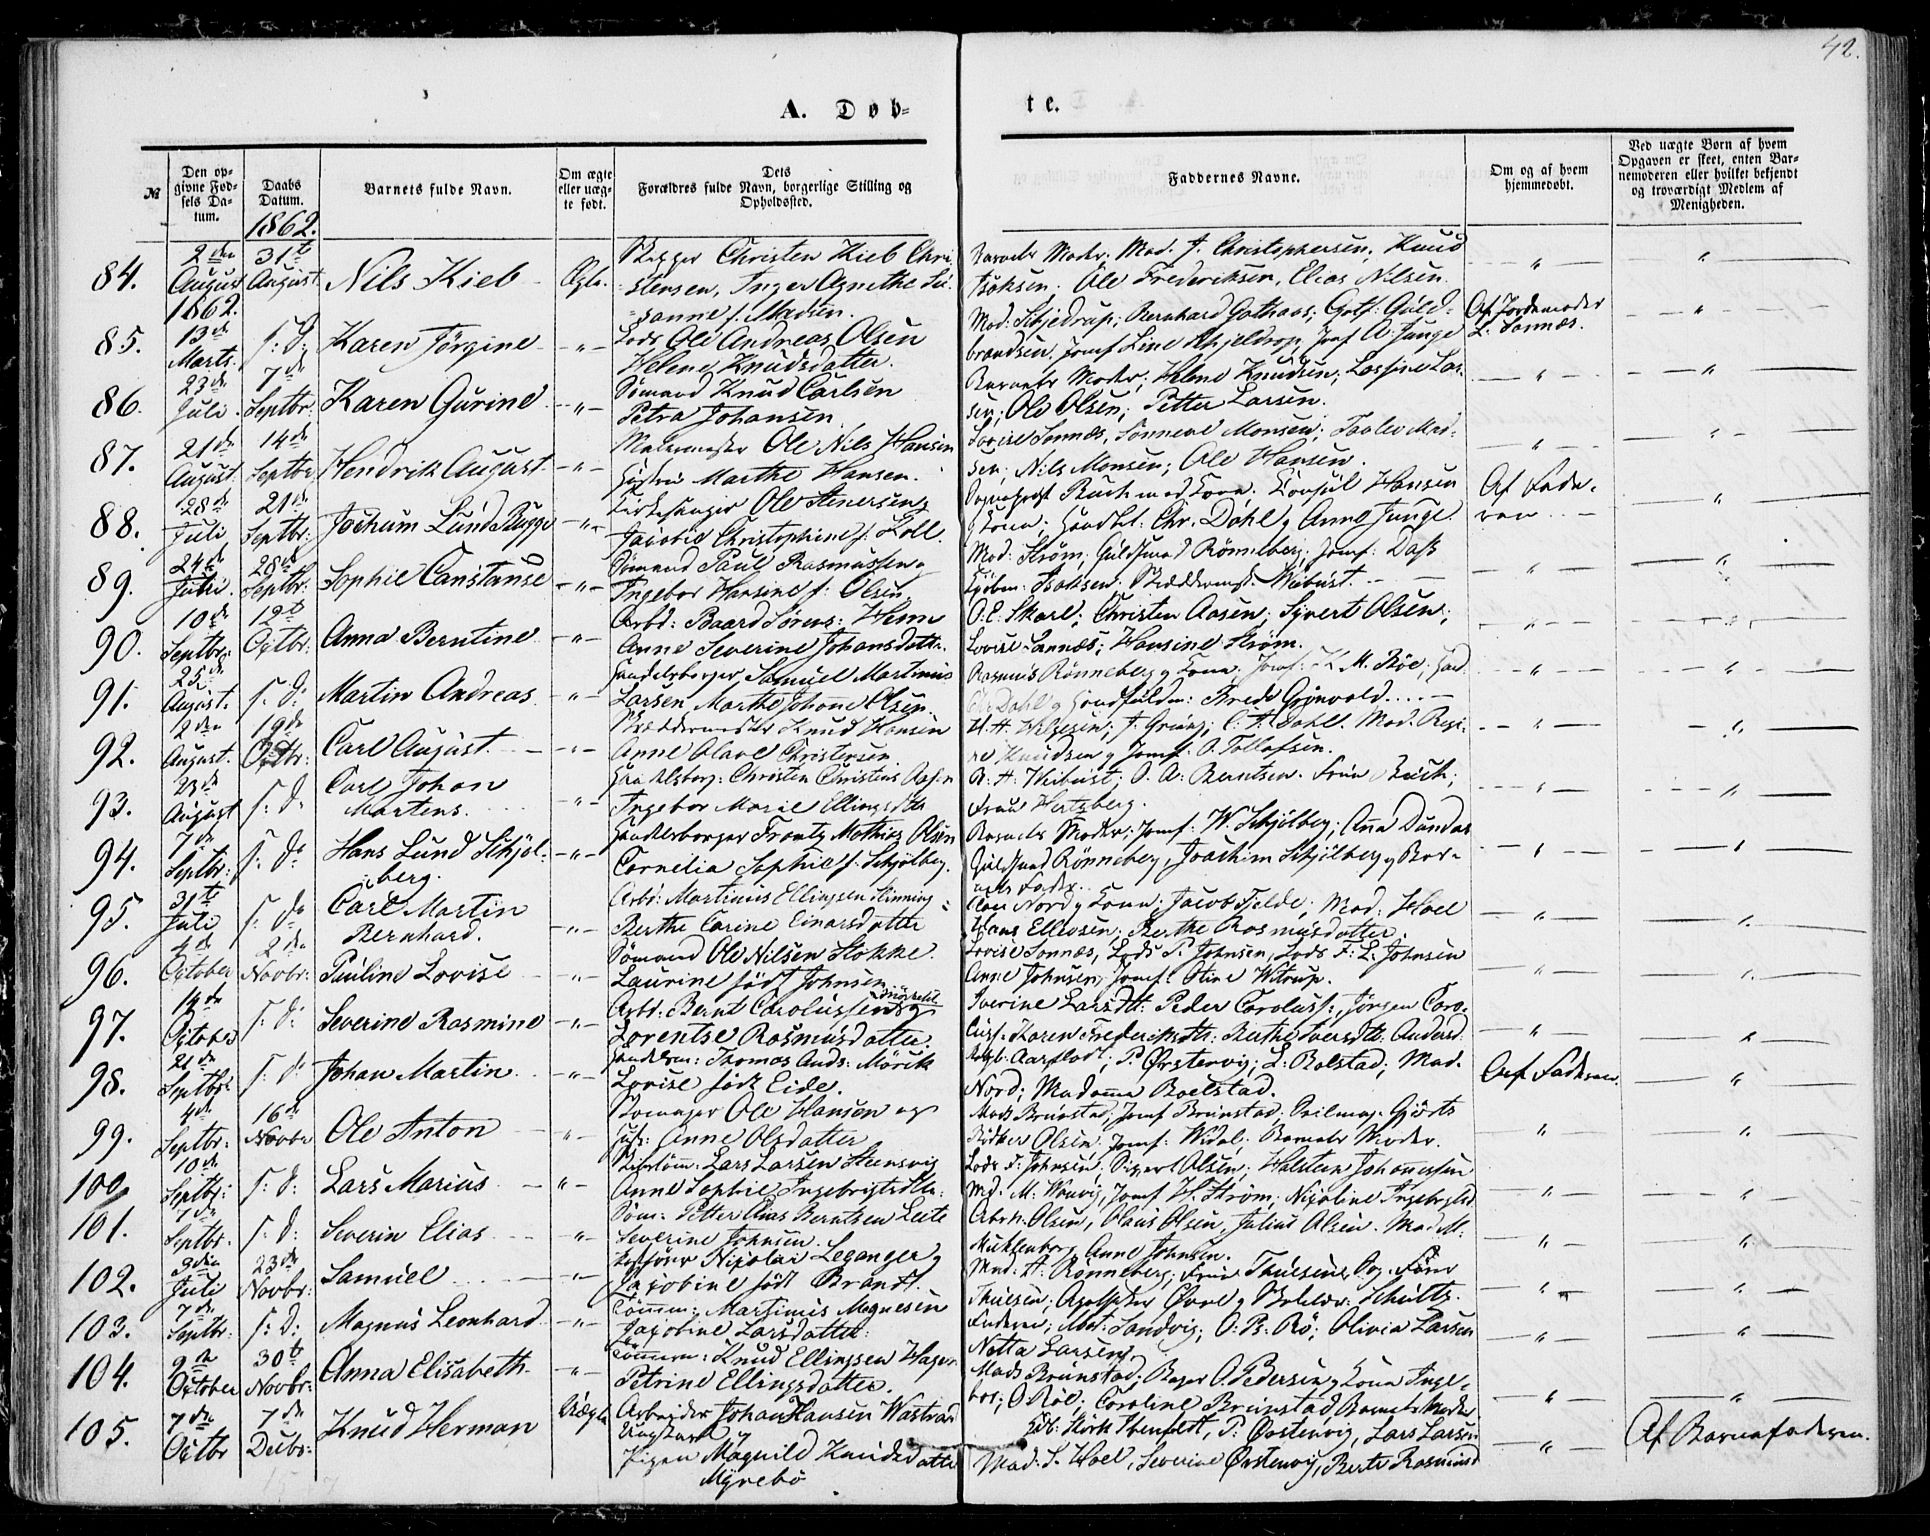 42.
A. Døb-
te.
№
Den op-
givne Fød-
sels Da-
tum.
Daabs
Datum.
1862.
Barnets fulde Navn.
Om ægte
eller uæg-
te født.
Dets
Forældres fulde Navn, borgerlige Stilling og
Opholdssted.
Faddernes Navne.
Om og af hvem
hjemmedøbt.
Ved uægte Børn af hvem
Opgaven er skeet, enten Bar-
nemoderen eller hvilket bekjendt
og troværdigt Medlem af
Menigheden.
84.
2den August 1862.
31te August
Nils Kieb
Ægte.
Christen Kieb Chri-
stensen, Inger Agnethe Su-
sanne f. Madsen.
Barnets Moder; Mad. J. Christophersen; Knud
Isaksen; Ole Frederiksen, Elias Nilsen.
85.
13de Marts
s: d:
Karen Jørgine
Lods Ole Andreas Olsen
Helene Knudsdatter.
Mad: Schjeldrup; Bernhard Gothaas; Gotf: Guld-
brandsen, Jomf Line Schjeldrop, Jomf A. Junge
Af Jordemoder
L. Sonnæs.
86.
23de Juli
7de Septbr:
Karen Gurine
Sømand Knud Carlsen
Petra Johansen
Barnets Moder; Helene Knudsen; Lassine Lar-
sen; Ole Olsen; Petter Larsen.
87.
21de August
14de Septbr
Hendrik August
Malermester Ole Nils Hansen
Hustru Marthe Hansen.
Lovise Sonnæs, Sønneve Monsen; Tovlev Mad-
sen; Nils Monsen; Ole Hansen.
88.
28de Juli
21de Septbr:
Jochum Lund Bugge
Kirkesanger Ole Stenersen og
Jacobie Christophine f: Koll.
Sognepræst Buch med Kone; Konsul Hansen
og Kone; Handbet: Chr. Dahl og Anne Junge
Af Fade-
ren
89.
24de Juli
28de Septbr:
Sophie Constanse
Sømand Paul Rasmussen og
Ingebor Hansine f: Olsen.
Mad: Strøm; Guldsmed Rønneberg; Jomf: Dass
Kjøbm: Isaksen; Skreddermest: Wiibust.
90.
10de Septbr:
12te Octbr:
Anna Berntine
Arbd: Baard Sørens: Heen
Anne Severine Johansdatte.
O. E. Skarl; Christen Aasen; Syvert Olsen;
Lovise Sonnæs; Hansine Strøm.
91.
25de August.
s: d:
Martin Andreas
Handelsborger Samuel Martinus
Larsen, Marthe Johane Olsen.
Rasmus Rønneberg og Kone; Jomf: K. M. Röe; Hand
Chr Dahl og Handfuldm: Brede Grønvold.
92.
2den August.
19de Octbr:
Carl August.
Skreddermester Knud Hansen
Anne Olave Christensen.
H. H. Helgesen; J. Grøning; C. A. Dahl. Mad. Regi-
ne Knudsen og Jomf: O. Tollofsen.
93.
23de August
s: d:
Carl Johan
Martens.
Handelsborg: Christen Christens Aasen
Ingebor Marie Ellingsdtr
B. H. Wiibust; O. A: Berntsen. Frue Buck;
Frue Hertzberg.
94.
7de Septbr:
s: d:
Hans Lund Schjøl-
berg.
Handelsborger Frantz Mathias Olsen
Cornelia Sophie f. Schjølberg.
Barnets Moder; Jomf: W. Schjølberg; Ana Dundas
Guldsmed Rønneberg, Joachim Schjølberg og Bar-
nets Fader.
95.
31te Juli
s: d:
Carl Martin
Bernhard.
Arbd: Martinus Ellingsen
Berthe Carine Einarsdatter
Nord og Kone; Jacob Tjelde; Mad: Hoel
Hans Elliasen; Berthe Rasmusdatter
96.
4de October
2den Novbr:
Pauline Lovise
Sømand Ole Nilsen Stokke.
Laurine født Johnsen.
Lovise Sonnæs, Lods P. Johnsen, Lods F. L. Johnsen
Anne Johnsen, Jomf: Oline Witrup.
97.
19de October
s: d:
Severine Rasmine
Arbd: Bernt Carolussen
Lorentse Rasmusdatter.
Iverine Larsdtr: Peder Carolus: Jørgen Caro-
luss: Karen Frederiksdtr: Berthe Iversdtr: Anders
98.
21de Septbr:
s: d:
Johan Martin
Handelsm: Thomas Ands: Mörk
Lovise født Eide.
Aarflodt; P. Ørstenvig; L: Bolstad; Mad.
Nord; Madame Boelstad.
Af Faderen.
99.
4de Septbr:
16de Novbr
Ole Anton
Skomager Ole Hansen og
Hust: Anne Olsdatter
Mads Brunstad, Jomf Brunstad: Seilmag. Gjørts
Bødker Olsen; Jomf: Widal; Barnets Moder.
100.
10de Septbr:
s: d:
Lars Marius
Skibstøm: Lars Larsen Steensvig
Anne Sophie Ingebrigtsdtr:
Lods F. Johnsen; Sivert Olsen; Halstein Johannessen
Md: M: Wonvig, Jomf H. Strøm, Nicoline Ingebrgtsd
101.
7de Septbr.
s: d:
Severin Elias
Søm: Petter Elias Berntsen Leite
Severine Johnsen.
Abrh. Olsen, Olaus Olsen, Julius Olsen. Mad M:
Muhlenborg, Anne Johnsen.
102.
3die Juli
23de Novbr:
Samuel
Nicolai Leganger og
Jacobine født Brandt.
Mad: A: Rønneberg; Frue Thuesen, Sog. Fører
Thuesen; Apotheker Øvre og Schultz.
103.
7de Septbr:
s: d:
Magnus Leonhard
Tømm: Martinus Magnesen
Jacobine Larsdatter.
Faderen; Mat: Sandvig; O: Ps: Rö; Olivia Larsen
Netta Larsen.
104.
9de October
30te Novbr:
Anna Elisabeth.
Tømmerm: Knud Ellingssen Hagen
Petrine Ellingsdatter.
Mads Brunstad; Bager O. Pedersen og Kone Inge-
bor; O Röe; Caroline Brunstad Barnets Moder
105.
7de Octbr
7de Decbr:
Knud Herman
Uægte
Arbeider Johan Hansen
Ungkarl
Pigen Magnild Knudsdatter
Myrebø
P. Ørstenvig, Lars Larsen
Mad. S. Hoel, Severine Ørstenvig, Berte Rasmusd
Af Barnefaderen.